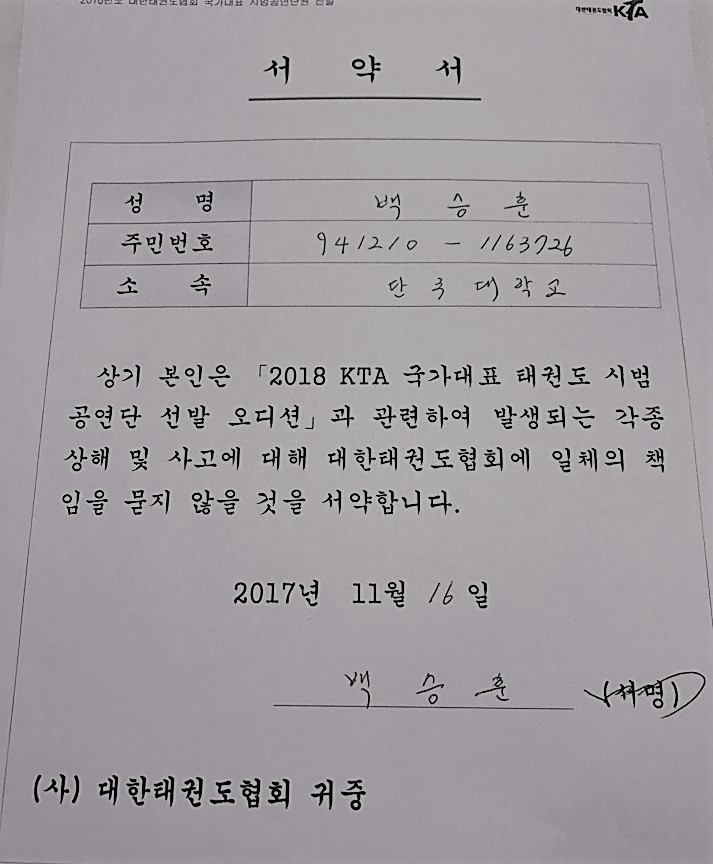 2018년도 대한태권도협회 국가대표 시범공연단원 선발
대한태권도협회 KTA
서 약 서
성 명 백 승 훈
주민번호 941210 - 1163726
소 속 단 국 대 학 교
상기 본인은 「2018 KTA 국가대표 태권도 시범
공연단 선발 오디션」과 관련하여 발생되는 각종
상해 및 사고에 대해 대한태권도협회에 일체의 책
임을 묻지 않을 것을 서약합니다.
2017년 11월 16 일
백 승 훈 (서명)
(사) 대한태권도협회 귀중